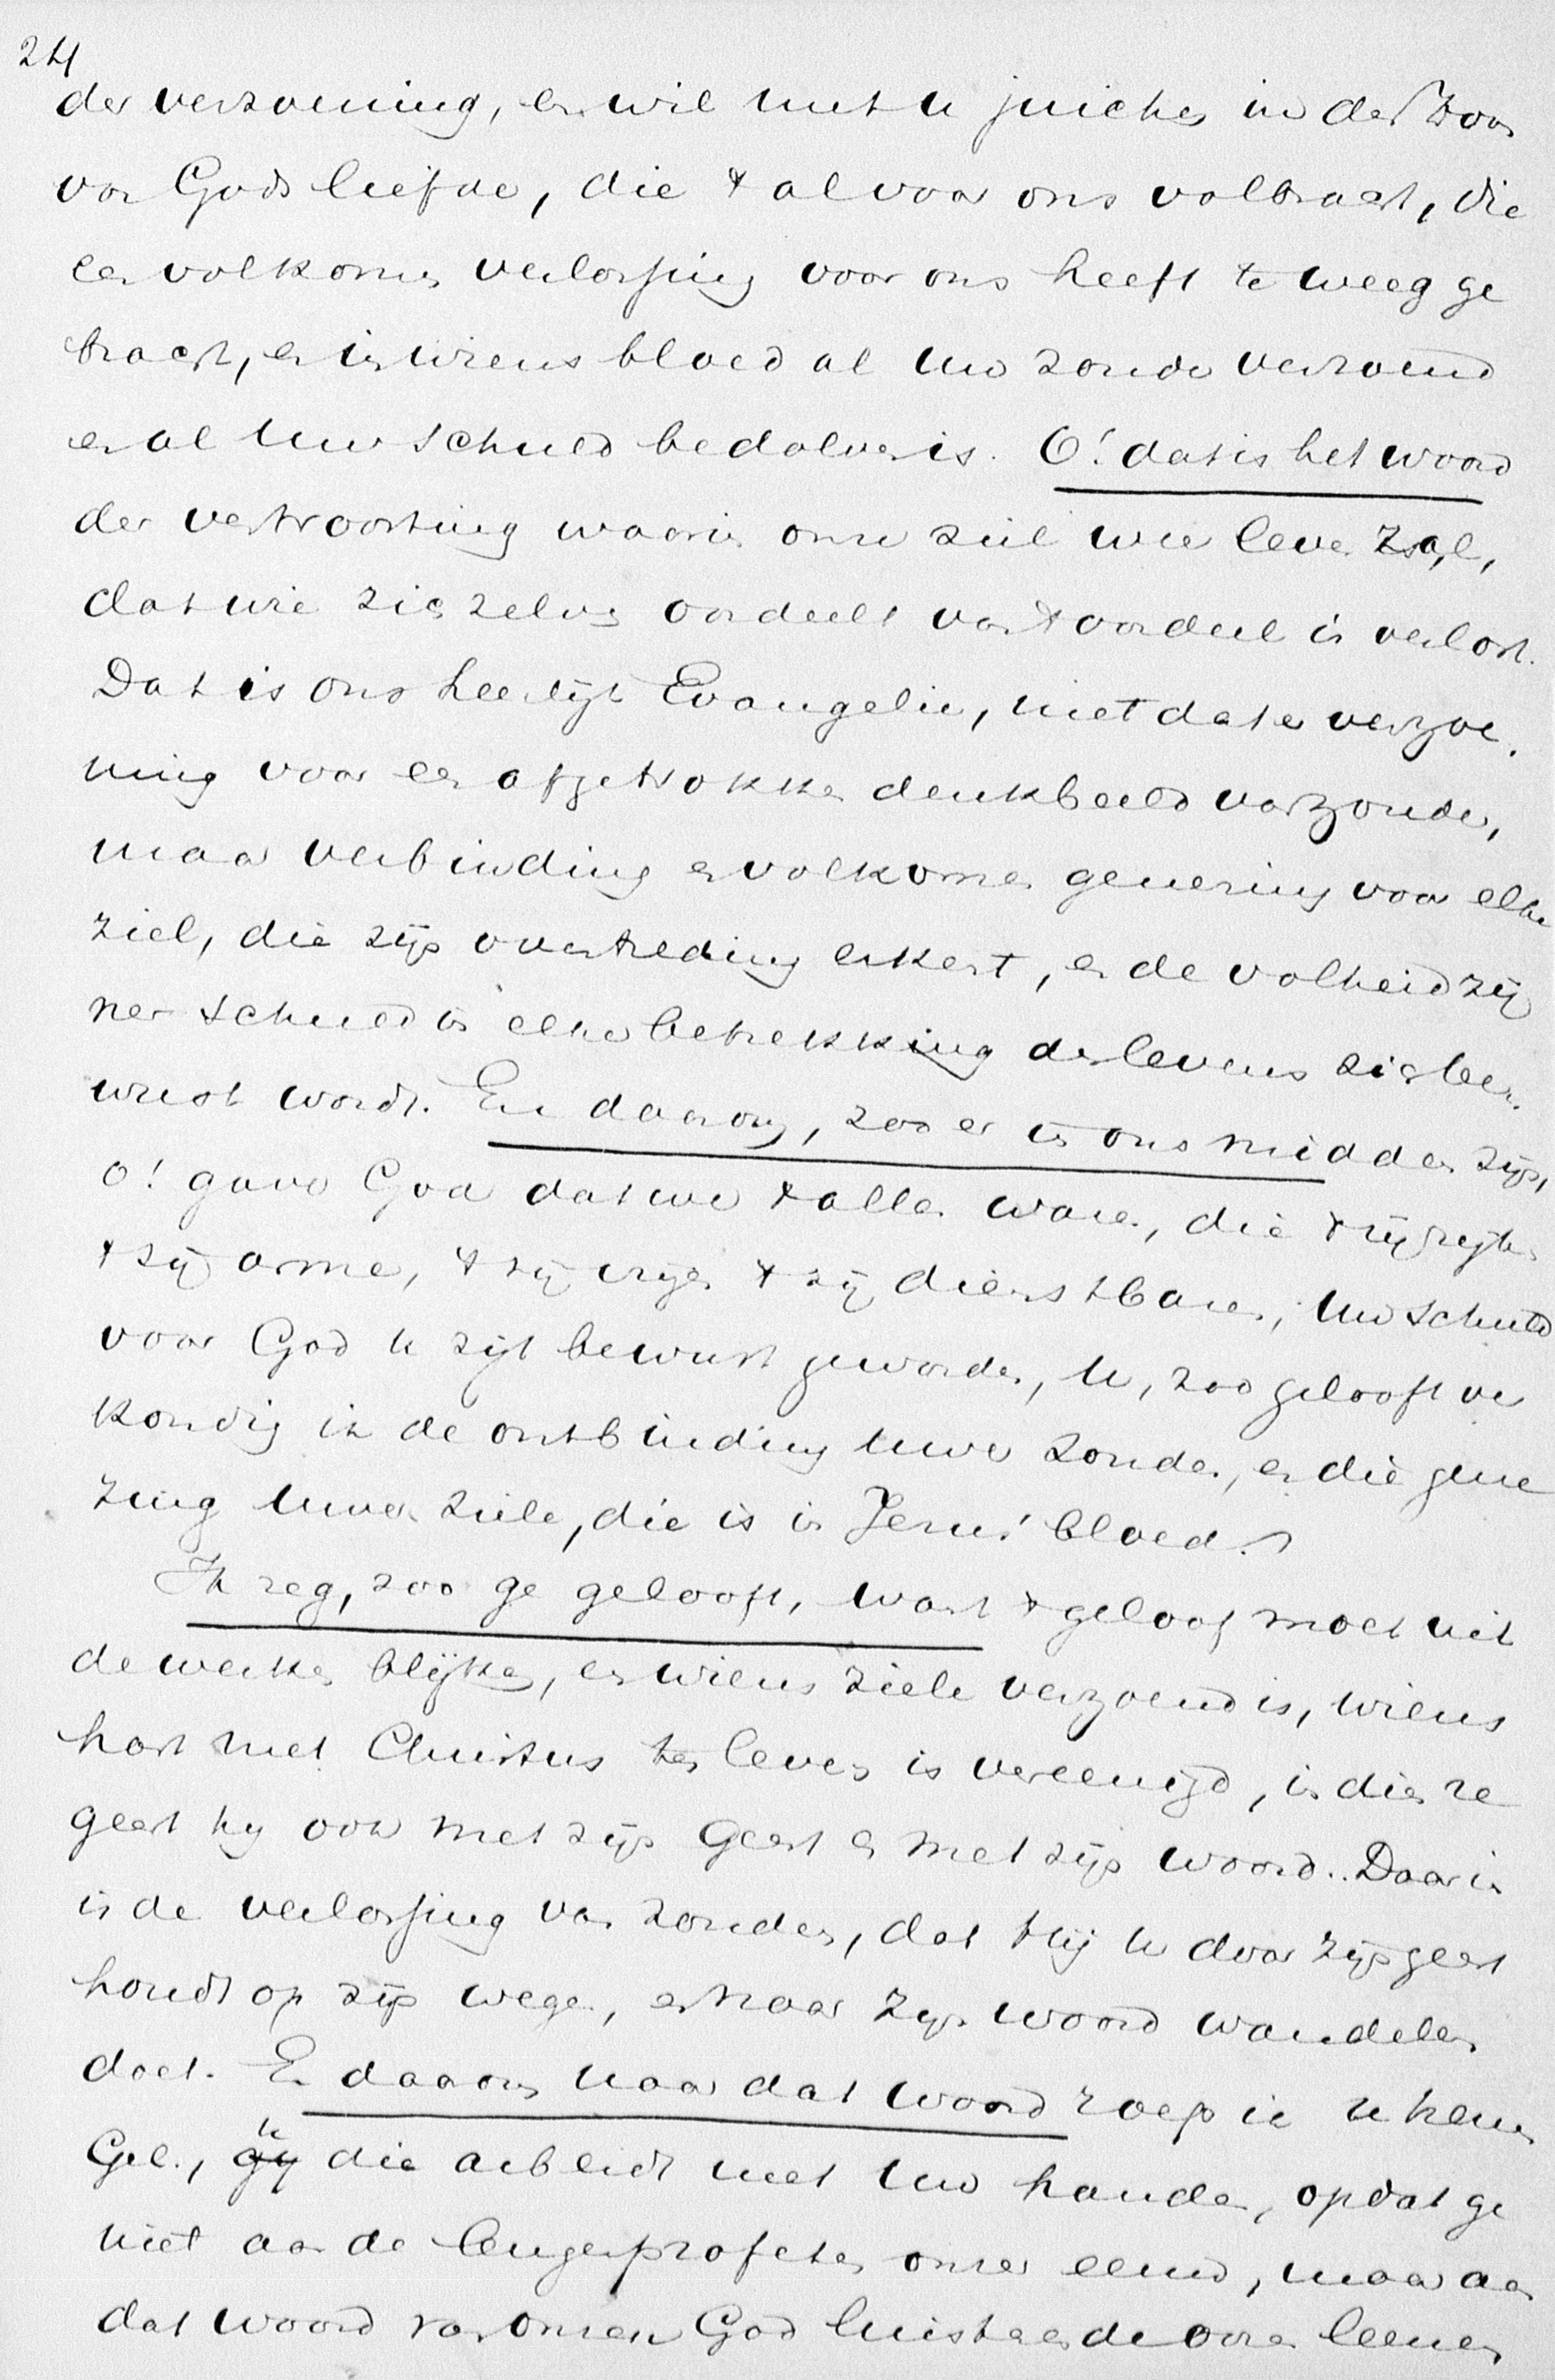 24
der verzoening, en wil met u juichen in den Zoon
van Gods liefde, die 't al voor ons volbracht, die
een volkomen verlossing voor ons heeft te weeg ge
bracht, en in wiens bloed al uw zonde verzoend
en al uw schuld bedolven is. O! dat is het woord
der vertroosting waarin onze ziel weer leven zal,
dat wie zich zelven oordeelt van 't oordeel is verlost.
Dat is ons heerlijk Evangelie, niet dat er verzoe
ning voor een afgetrokken denkbeeld van zonden,
maar verbinding en volkomen genezing voor elke
ziel, die zijn overtreding erkent, en de volheid zij
ner schuld in elke betrekking des levens zich be
wust wordt. En daarom, zoo er in ons midden zijn,
o! gave God dat we 't allen waren, die 't zij rijken
't zij arme, 't zij vrijen 't zij dienstbaren, uw schuld
voor God u zijt bewust geworden, u, zoo gelooft ver
kondig ik de ontbinding uwer zonden, en die gene
zing uwer ziele, die is in Jezus' bloed.
Ik zeg, zoo ge gelooft, want 't geloof moet uit
de werken blijken, en wiens ziele verzoend is, wiens
hart met Christus ten leven is vereenigd, in dien re
geert hij ook met zijn Geest en met zijn woord. Daarin
is de verlossing van zonden, dat Hij u door zijn geest
houdt op zijn wegen, en naar zijn woord wandelen
doet. En daarom naar dat woord roep ik u henen
Gel., u die arbeidt met uw handen, opdat ge
niet aan de leugenprofeten onzer eeuw, maar aan
dat woord van onzen God luisterende ooren leenen